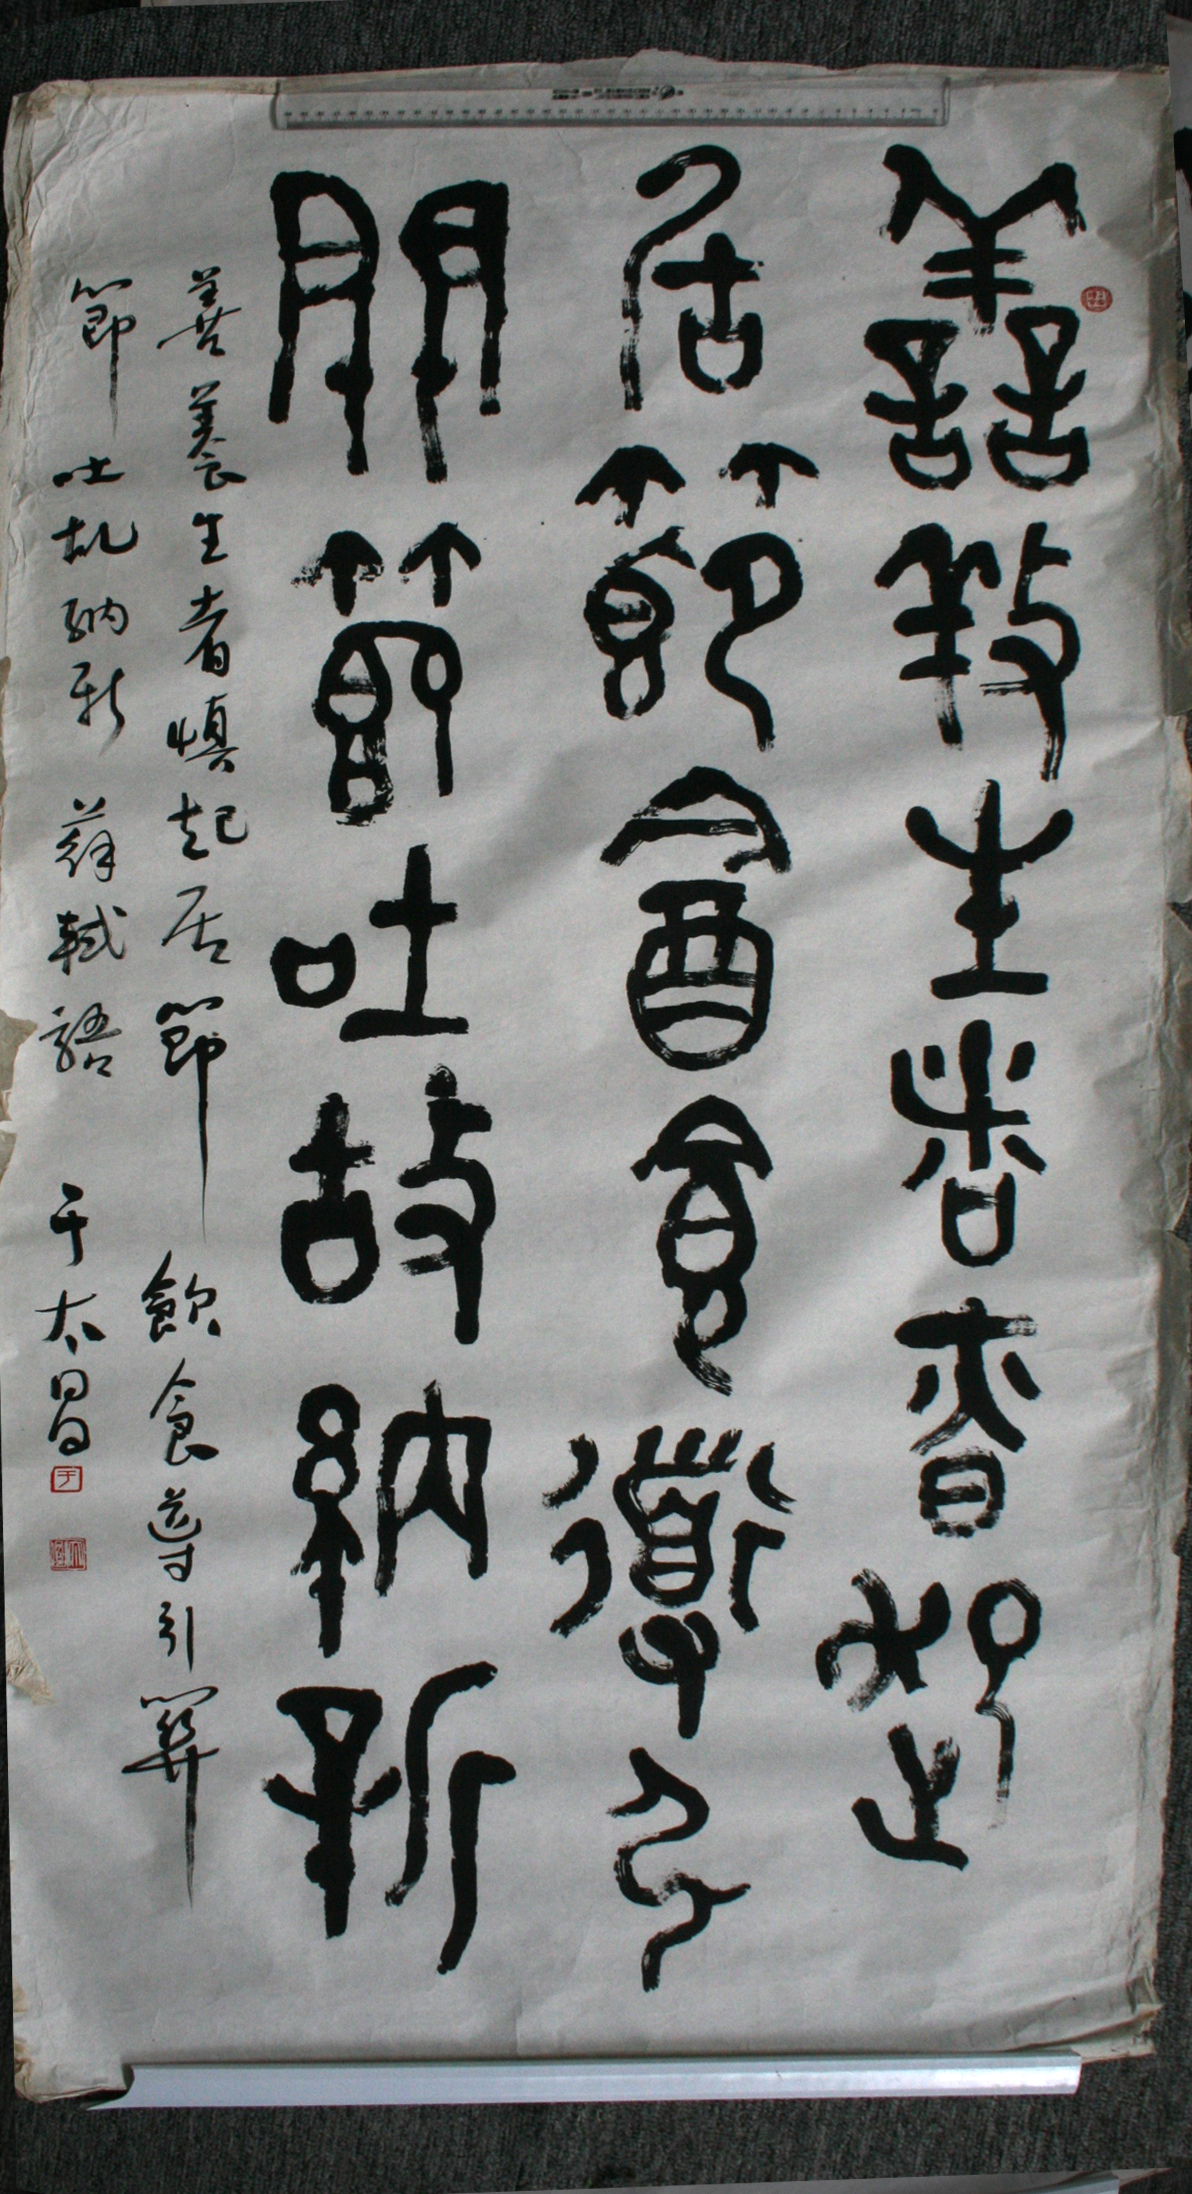 譱養生者昚起
居節飲食導引
關節吐故納新
善養生者慎起居節飲食導引關
節吐故納新 蘇軾語 于太昌
于